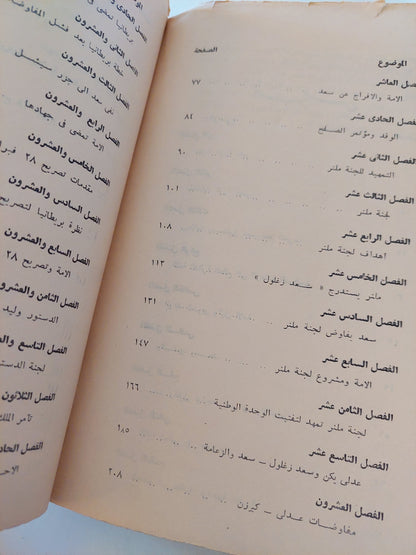 الموضوع
الصفحة
الفصل العاشر
الامة والافراج عن سعد .. .. .. ٧٧
الفصل الحادى عشر
الوفد ومؤتمر الصلح .. .. .. ٨٤
الفصل الثانى عشر
التمهيد للجنة ملنر .. .. .. ٩٠
الفصل الثالث عشر
لجنة ملنر .. .. .. ١٠١
الفصل الرابع عشر
اهداف لجنة ملنر .. .. .. ١٠٨
الفصل الخامس عشر
ملنر يستدرج « سعد زغلول » .. .. ١١٣
الفصل السادس عشر
سعد يفاوض لجنة ملنر .. .. .. ١٣١
الفصل السابع عشر
الامة ومشروع لجنة ملنر .. .. .. ١٤٧
الفصل الثامن عشر
لجنة ملنر تمهد لتفتيت الوحدة الوطنية .. ١٦٦
الفصل التاسع عشر
عدلى يكن وسعد زغلول ــ سعد والزعامة .. ١٨٥
الفصل العشرون
مفاوضات عدلى ــ كيرزن .. .. .. ٢٠٨
الفصل الحادى والعشرون
بريطانيا تمضى فى
الفصل الثانى والعشرون
خطة بريطانيا بعد فشل المفاوض
الفصل الثالث والعشرون
نفى سعد الى جزر سيشل
الفصل الرابع والعشرون
الامة تمضى فى جهادها
الفصل الخامس والعشرون
مقدمات تصريح ٢٨ فبرا
الفصل السادس والعشرون
نظرة بريطانيا لتصريح
الفصل السابع والعشرون
الامة وتصريح ٢٨
الفصل الثامن والعشرون
الدستور وليد
الفصل التاسع والع
لجنة الدستو
الفصل الثلاثون
تآمر الملك
الفصل الحاد
الاحـ